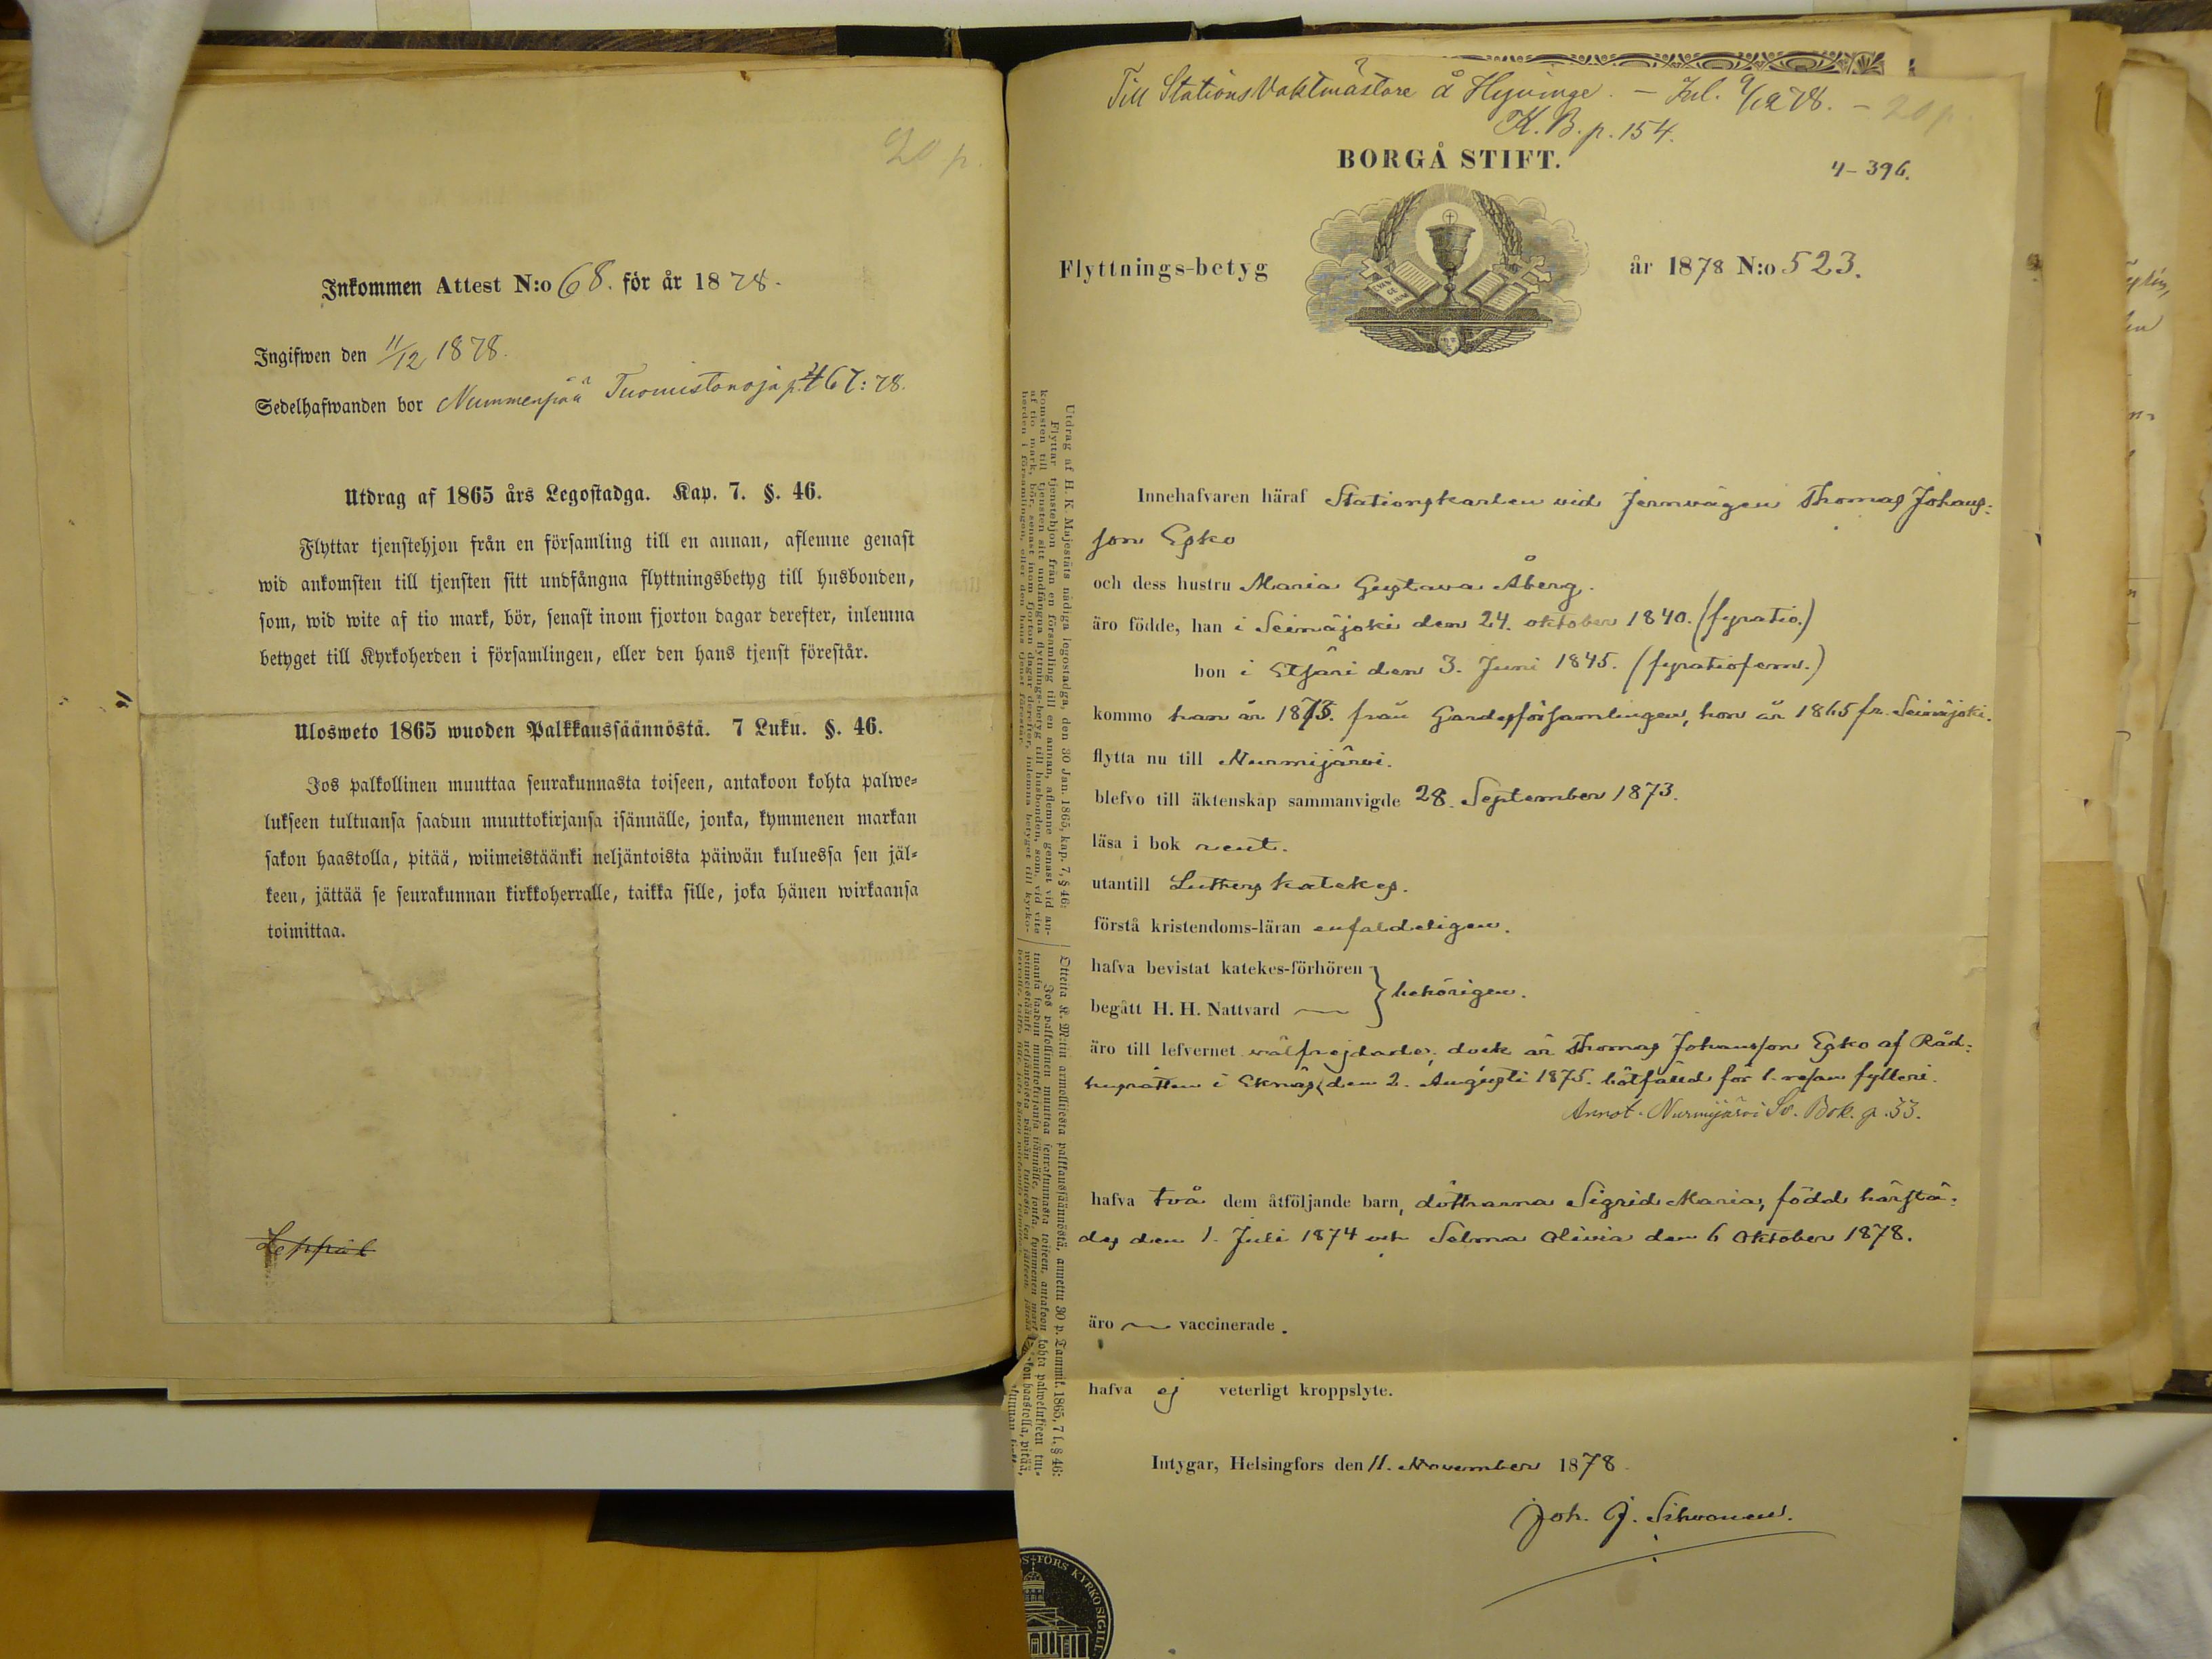 20 p.
Inkommen Attest N:o 68. för år 1878.
Ingifwen den 11/12 1878.
Sedelhafwanden bor Nummenpää Tuomistonoja p. 467: 78.
Utdrag af 1865 års Legostadga. Kap. 7. §. 46.
Flyttar tjenstehjon från en församling till en annan, aflemne genast
wid ankomsten till tjensten sitt undfångna flyttningsbetyg till husbonden,
som, wid wite af tio mark, bör, senast inom fjorton dagar derefter, inlemna
betyget till Kyrkoherden i församlingen, eller den hans tjenst förestår.
Ulosweto 1865 wuoden Palkkaussäännöstä. 7 Luku. §. 46.
Jos palkollinen muuttaa seurakunnasta toiseen, antakoon kohta palwe-
lukseen tultuansa saadun muuttokirjansa isännälle, jonka, kymmenen markan
sakon haastolla, pitää, wiimeistäänki neljäntoista päiwän kuluessa sen jäl-
keen, jättää se seurakunnan kirkkoherralle, taikka sille, joka hänen wirkaansa
toimittaa.
Till Stations Vaktmästare å Hyvinge. – Inl. 9/12 78. – 20 p.
K. B. p. 154.
BORGÅ STIFT.
4–396.
Flyttnings-betyg
år 1878 N:o 523.
Utdrag af H. K. Majestäts nådiga legostadga, den 30 Jan. 1865, kap. 7, § 46:
Flyttar tjenstehjon från en församling till en annan, aflemne genast vid an-
komsten till tjensten sitt undfångna flyttnings-betyg till husbonden, som, vid vite
af tio mark, bör, senast inom fjorton dagar derefter, inlemna betyget till kyrko-
herden i församlingen, eller den hans tjenst förestår.
Otteita K. M:tin armollisesta palkkaussäännöstä, annettu 30 p. Tammik. 1865, 7 l. § 46:
Jos palkollinen muuttaa seurakunnasta toiseen, antakoon kohta palwelukseen tul-
tuansa saadun muuttokirjansa isännälle, jonka, kymmenen mark kon haastolla, pitää,
Innehafvaren häraf Stationskarlen vid Jernvägen Thomas Johans-
son Esko
och dess hustru Maria Gustava Åberg.
äro födde, han i Seinäjoki den 24. oktober 1840. (fyratio.)
hon i Etsäri den 3. Juni 1845. (fyratiofem.)
kommo han år 1873. från Gardesförsamlingen, hon år 1865 fr. Seinäjoki.
flytta nu till Nurmijärvi.
blefvo till äktenskap sammanvigde 28. September 1873.
läsa i bok rent.
utantill Luthers katekes.
förstå kristendoms-läran enfaldeligen.
hafva bevistat katekes-förhören
behörigen.
begått H. H. Nattvard
äro till lefvernet välfrejdade; dock är Thomas Johansson Esko af Råd-
husrätten i Ekenäs den 2. Augusti 1875. bötfälld för 1. resan fylleri.
Annot. Nurmijärvi Sv. Bok. p. 33.
hafva två dem åtföljande barn, döttrarna Sigrid Maria, född härstä-
des den 1. Juli 1874 och Selma Olivia den 6 Oktober 1878.
äro vaccinerade.
hafva ej veterligt kroppslyte.
Intygar, Helsingfors den 11. November 1878.
Joh. J. Sihvonen.
FORS KYRKO SIGILL